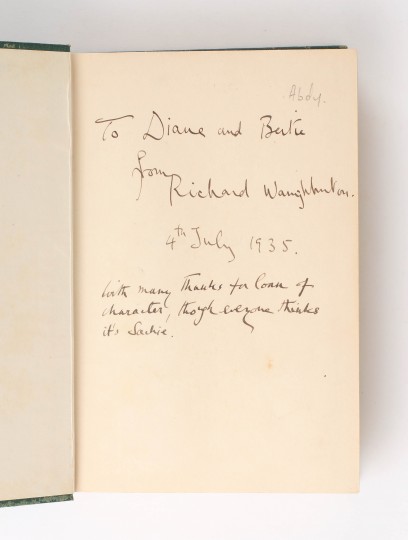 Abdy.
To Diane and Bertie
from
Richard
4th July 1935.
With many thanks for loan of
character, though everyone thinks
it's